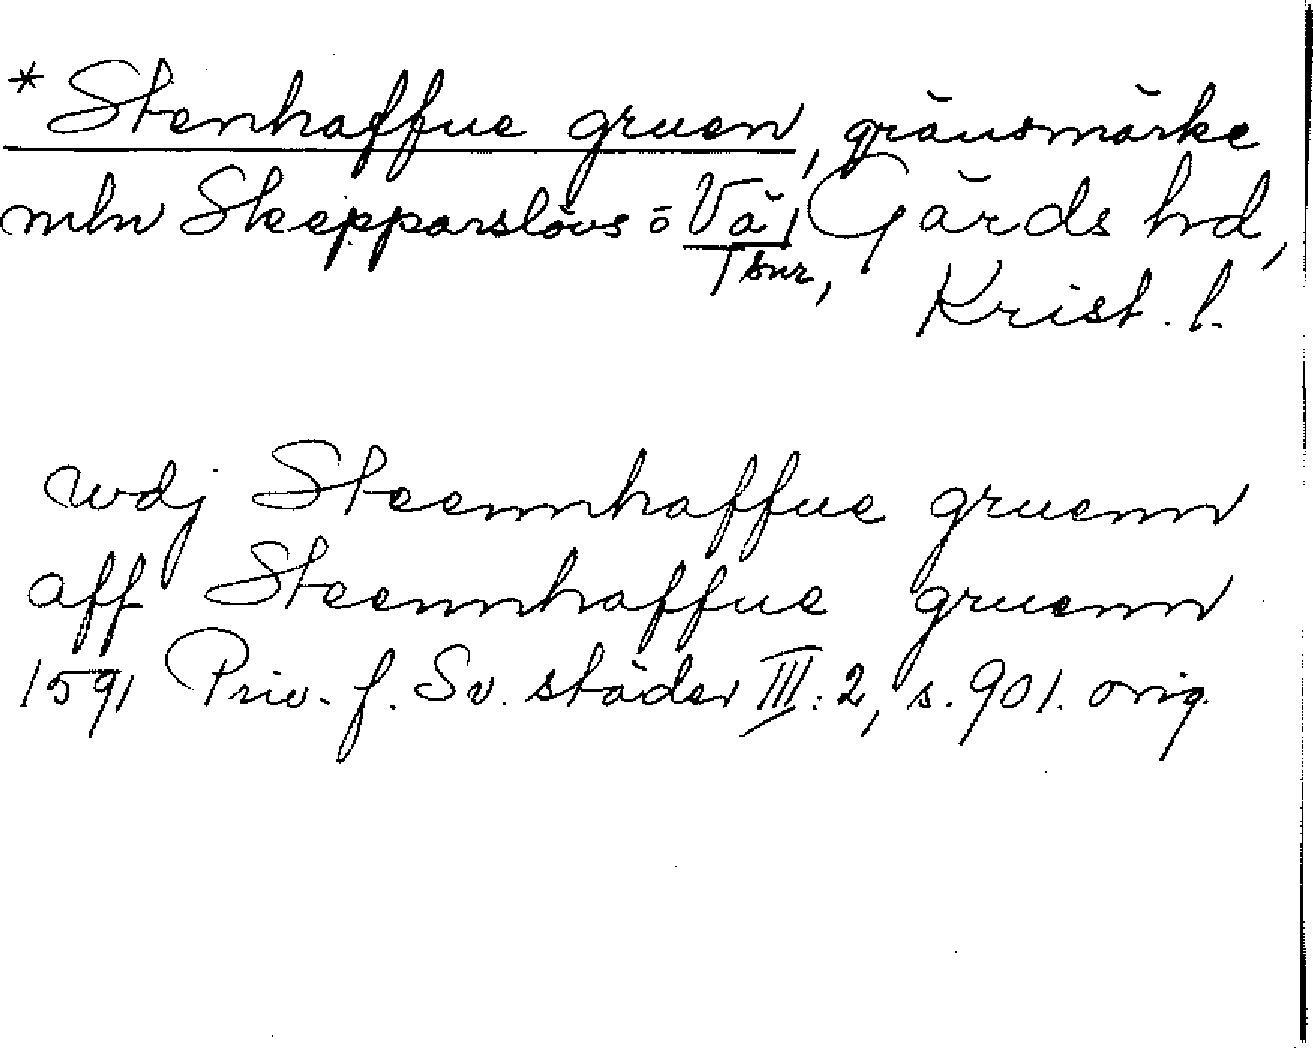 *Stenhaffue gruen, gränsmärke
mln Skepparslövs o Vä, Gärds hd,
snr, Krist. l.
wdj Steennhaffue gruenn
aff Steennhaffue gruenn
1591 Priv. f. Sv. städer III: 2, s. 901. orig.